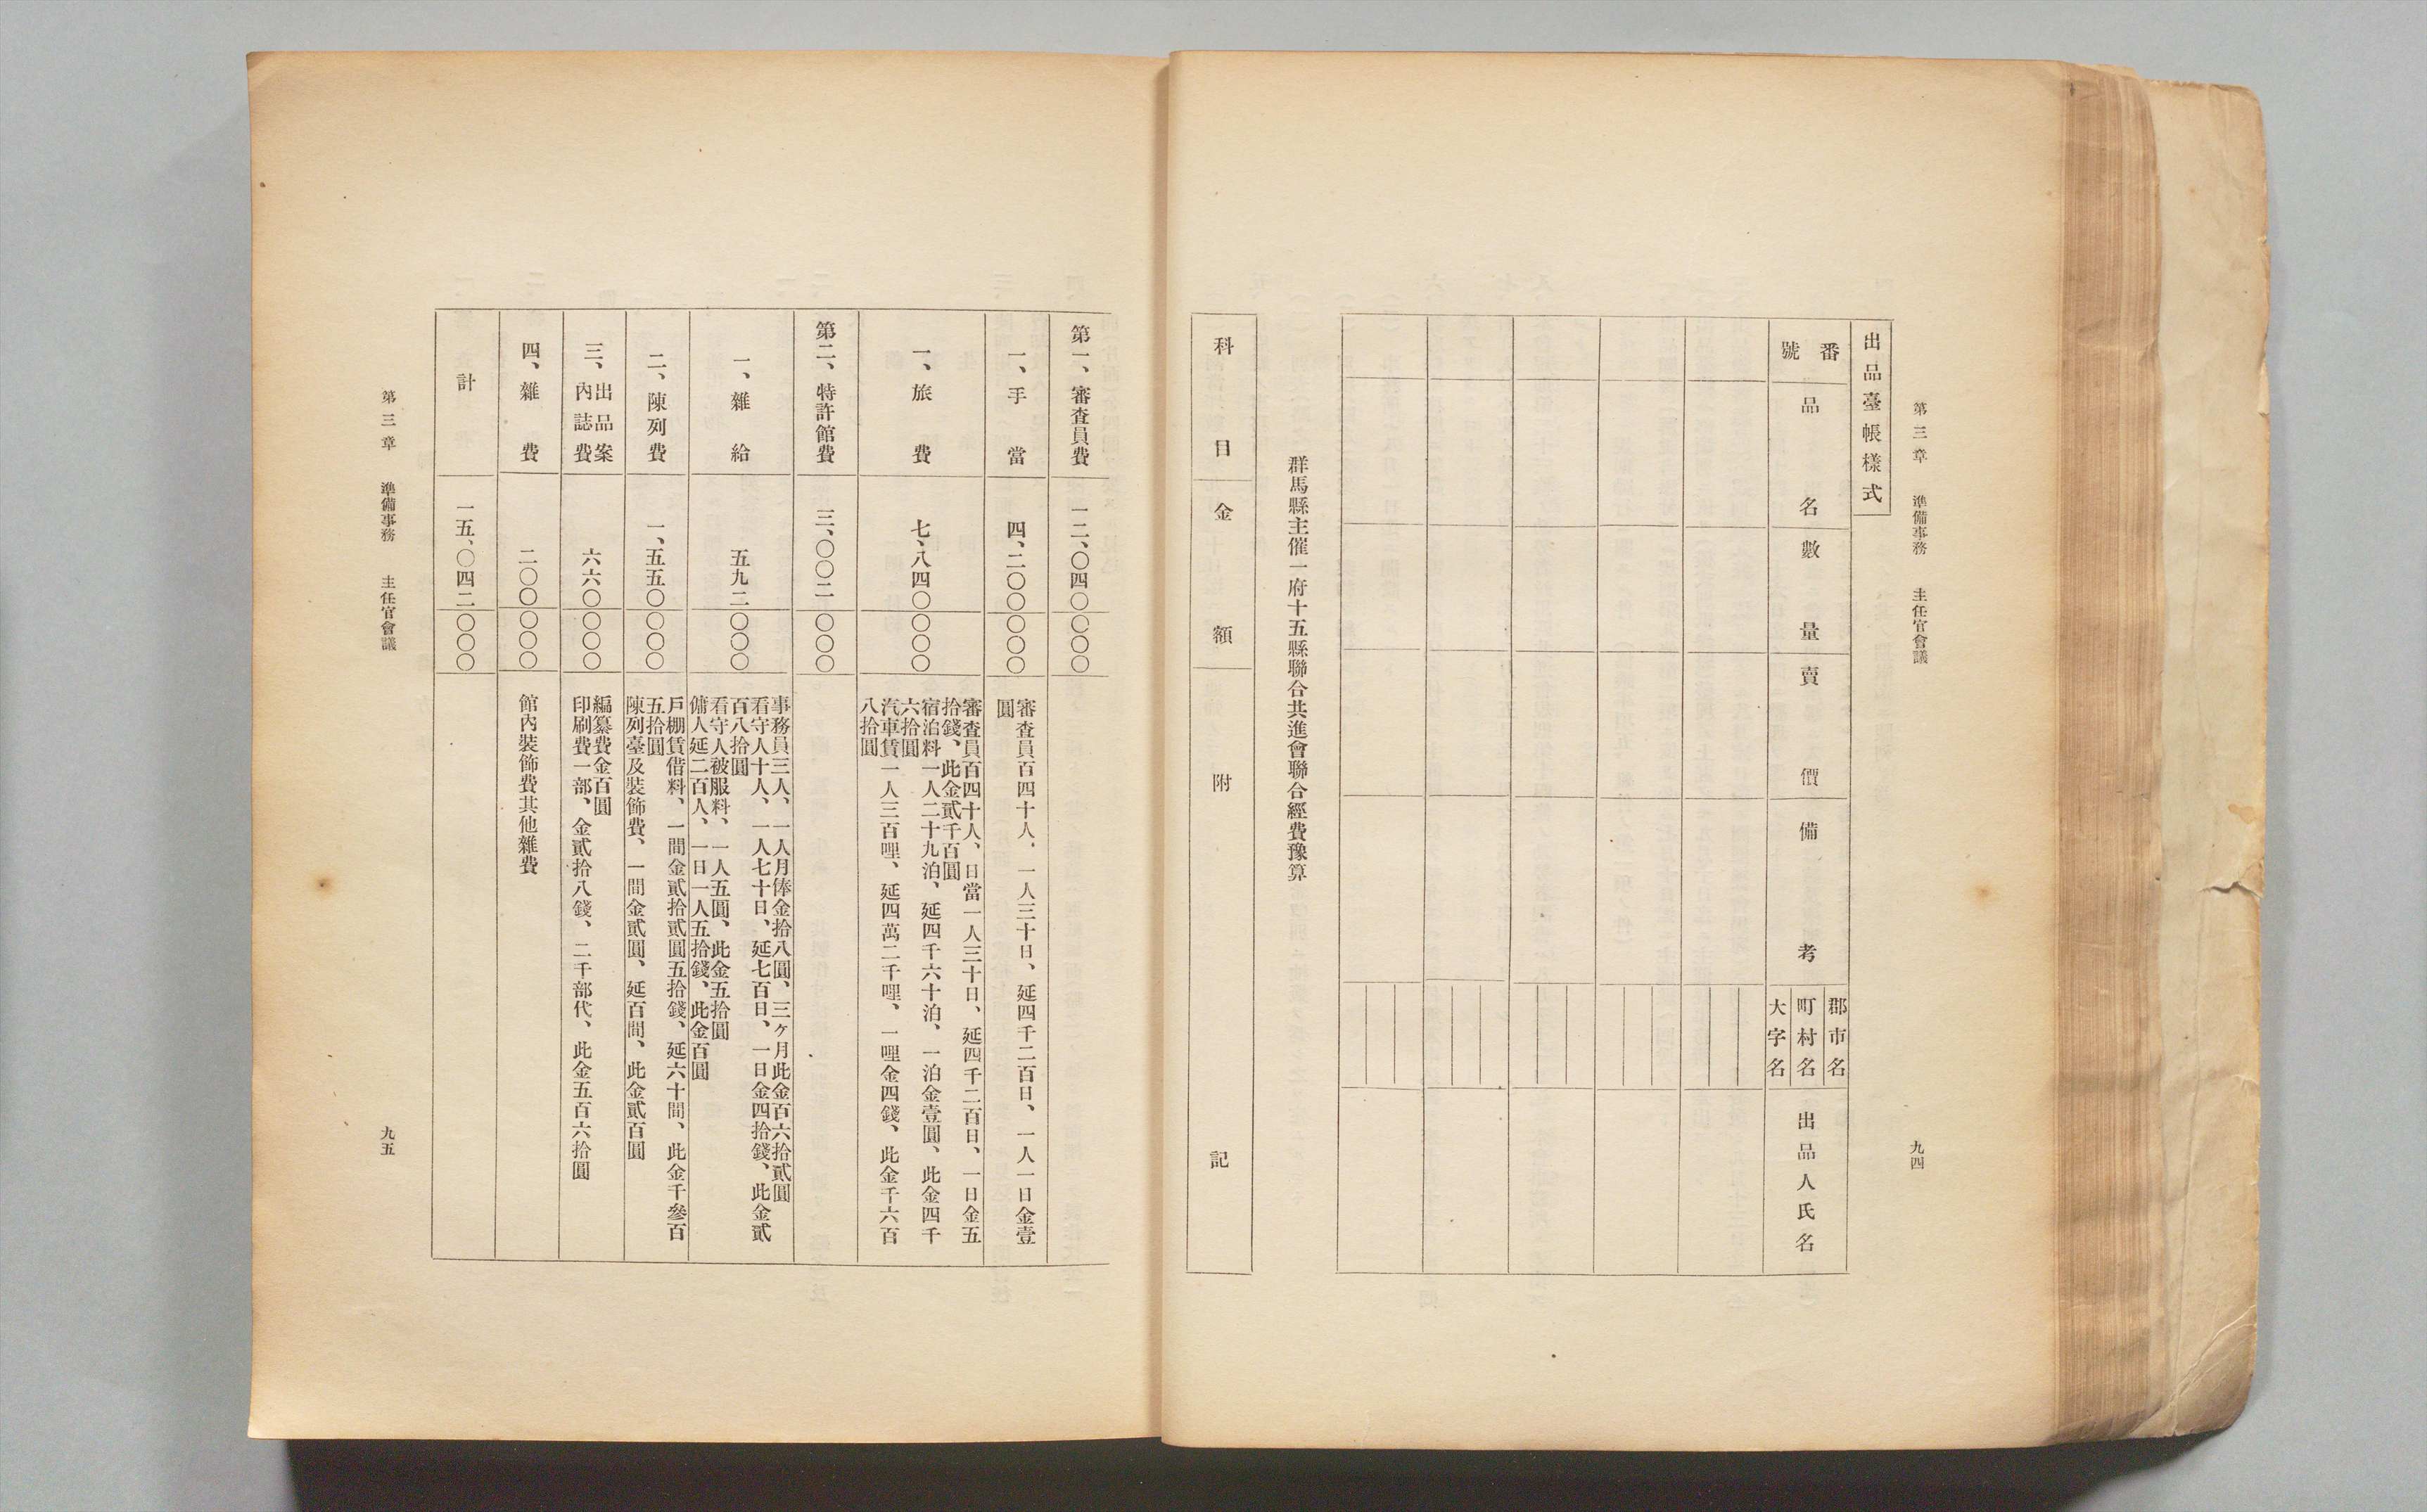 第三章　準備事務　主任官會議
九四
出品臺帳樣式
番號
品名
數量
賣價
備考
郡市名
町村名
大字名
出品人氏名
群馬縣主催一府十五縣聯合共進會聯合經費豫算
科目
金額
附記
第一、審査員費
一二、〇四〇〇〇〇
一、手當
四、二〇〇〇〇〇
審査員百四十人、一人三十日、延四千二百日、一人一日金壹
圓
一、旅費
七、八四〇〇〇〇
審査員百四十人、日當一人三十日、延四千二百日、一日金五
拾錢、此金貳千百圓
宿泊料一人二十九泊、延四千六十泊、一泊金壹圓、此金四千
六拾圓
汽車賃一人三百哩、延四萬二千哩、一哩金四錢、此金千六百
八拾圓
第二、特許館費
三、〇〇二〇〇〇
一、雜給
五九二〇〇〇
事務員三人、一人月俸金拾八圓、三ケ月此金百六拾貳圓
看守人十人、一人七十日、延七百日、一日金四拾錢、此金貳
百八拾圓
看守人被服料、一人五圓、此金五拾圓
傭人延二百人、一日一人五拾錢、此金百圓
二、陳列費
一、五五〇〇〇〇
戶棚賃借料、一間金貳拾貳圓五拾錢、延六十間、此金千參百
五拾圓
陳列臺及裝飾費、一間金貳圓、延百間、此金貳百圓
三、出品案
內誌費
六六〇〇〇〇
編纂費金百圓
印刷費一部、金貳拾八錢、二千部代、此金五百六拾圓
四、雜費
二〇〇〇〇〇
館內裝飾費其他雜費
計
一五、〇四二〇〇〇
第三章　準備事務　主任官會議
九五